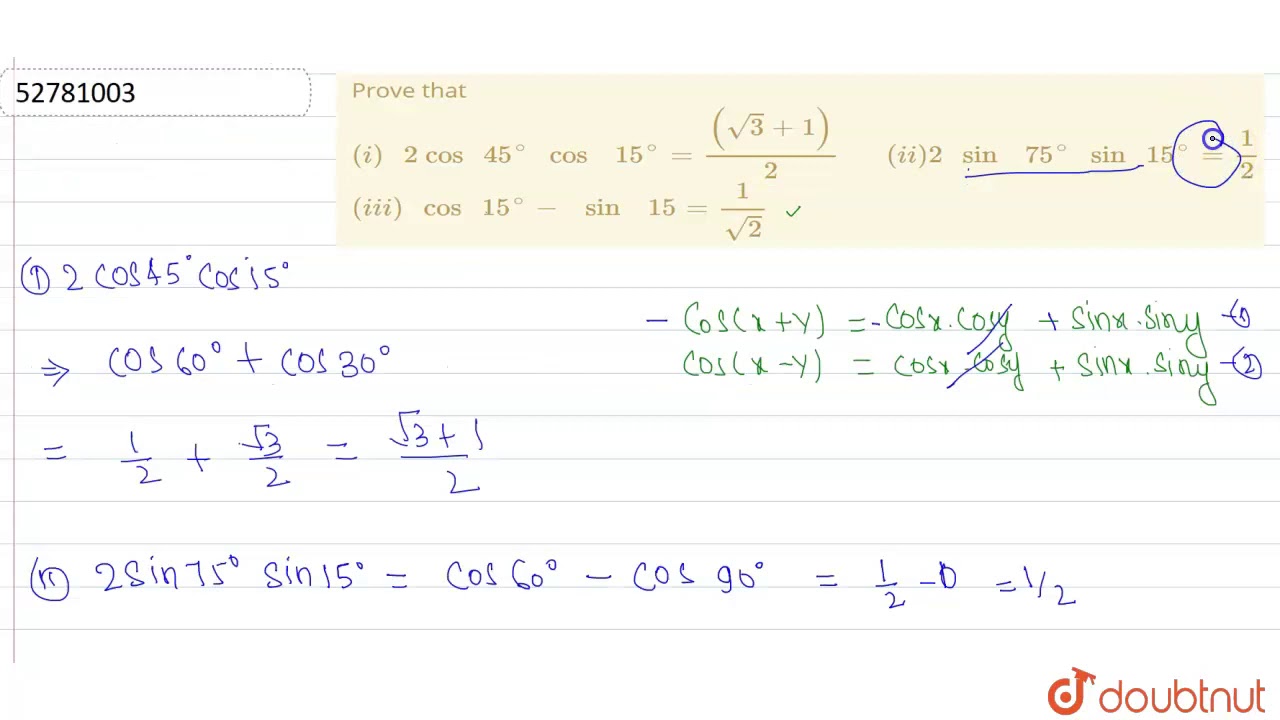 52781003
Prove that
(i) 2 cos 45° cos 15° = (√3 + 1)/2 (ii) 2 sin 75° sin 15° = 1/2
(iii) cos 15° − sin 15 = 1/√2 ✓
(i) 2 cos 45° cos 15°
− Cos(x+y) = -Cosx.Cosy + Sinx.Siny -(1)
⇒ Cos60° + Cos30°
Cos(x-y) = Cosx.Cosy + Sinx.Siny -(2)
= 1/2 + √3/2 = √3+1/2
(ii) 2Sin75° Sin15° = Cos60° − Cos90° = 1/2 − 0 = 1/2
doubtnut